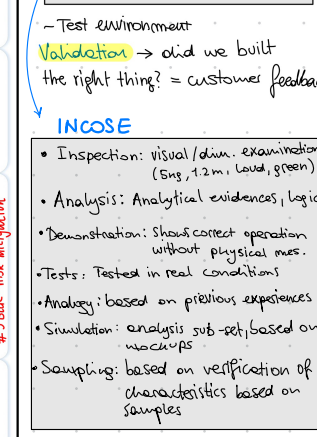 ~ Test environment
Validation → did we built
the right thing? = customer feedba
INCOSE
• Inspection: visual/dim. examination
(5mg, 1.2m, Loud, green)
• Analysis: Analytical evidences, logic
• Demonstration: Shows correct operation
without physical mes.
• Tests: Tested in real conditions
• Analogy: based on previous experiences
• Simulation: analysis sub-set, based on
mockups
• Sampling: based on verification of
characteristics based on
samples
mitigation